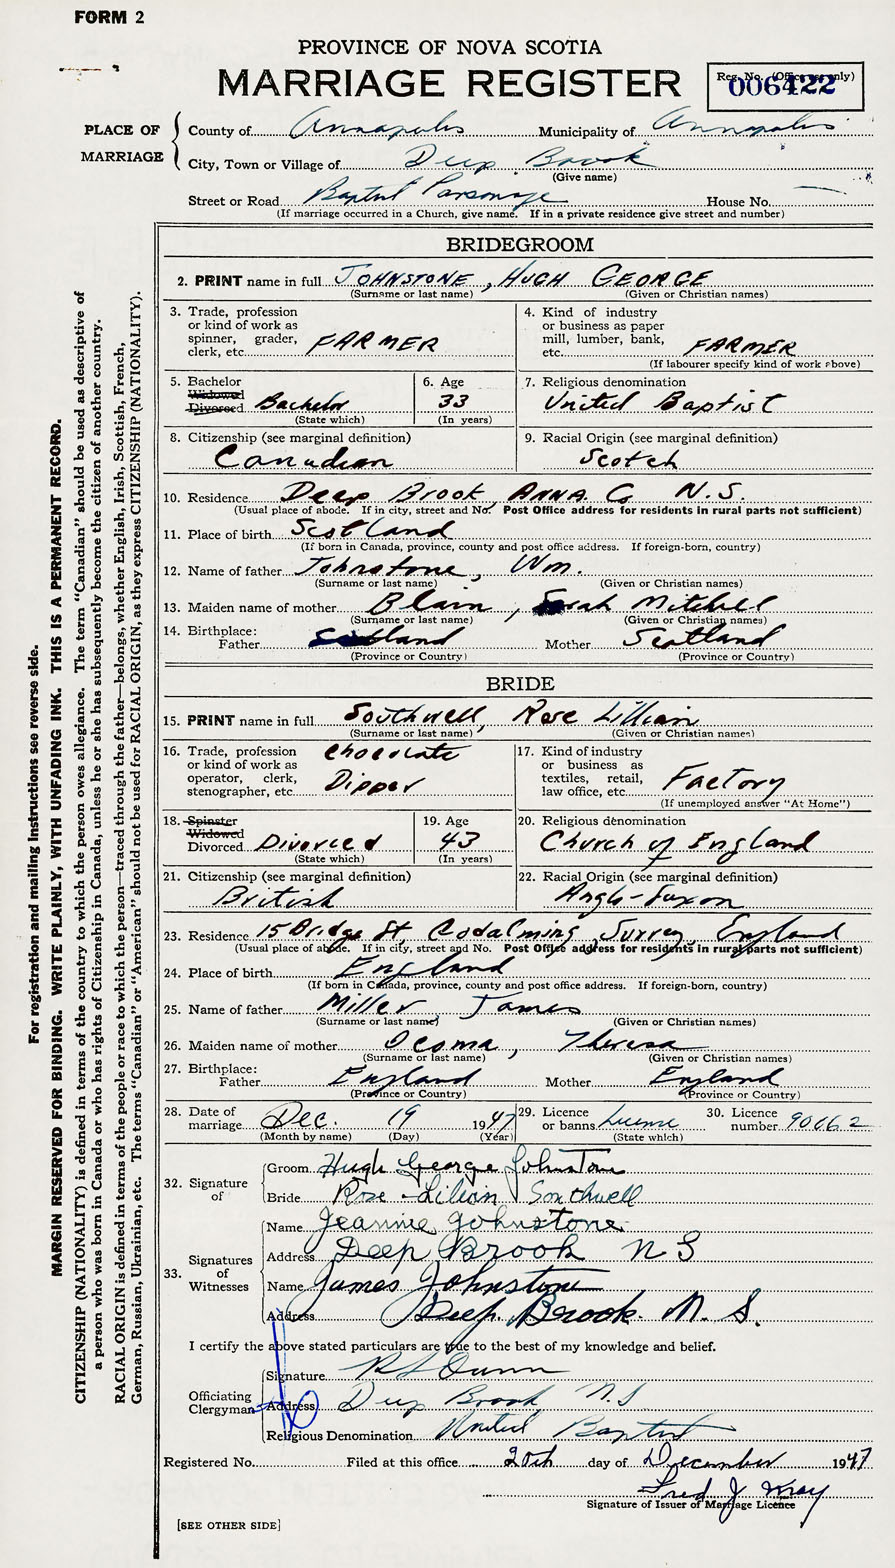 FORM 2
PROVINCE OF NOVA SCOTIA
MARRIAGE REGISTER
Reg. No. (Office use only)
006422
PLACE OF MARRIAGE
County of Annapolis Municipality of Annapolis
City, Town or Village of Deep Brook
(Give name)
Street or Road Baptist Parsonage House No. —
(If marriage occurred in a Church, give name. If in a private residence give street and number)
BRIDEGROOM
2. PRINT name in full JOHNSTONE, HUGH GEORGE
(Surname or last name) (Given or Christian names)
3. Trade, profession or kind of work as spinner, grader, clerk, etc. FARMER
4. Kind of industry or business as paper mill, lumber, bank, etc. FARMER
(If labourer specify kind of work above)
5. Bachelor Widowed Divorced Bachelor
(State which)
6. Age 33
(In years)
7. Religious denomination
United Baptist
8. Citizenship (see marginal definition)
Canadian
9. Racial Origin (see marginal definition)
Scotch
10. Residence Deep Brook, ANNA Co N.S.
(Usual place of abode. If in city, street and No. Post Office address for residents in rural parts not sufficient)
11. Place of birth Scotland
(If born in Canada, province, county and post office address. If foreign-born, country)
12. Name of father Johnstone, Wm.
(Surname or last name) (Given or Christian names)
13. Maiden name of mother Blain, Sarah Mitchell
(Surname or last name) (Given or Christian names)
14. Birthplace:
Father Scotland Mother Scotland
(Province or Country) (Province or Country)
BRIDE
15. PRINT name in full Southwell, Rose Lillian
(Surname or last name) (Given or Christian names)
16. Trade, profession or kind of work as operator, clerk, stenographer, etc. Chocolate Dipper
17. Kind of industry or business as textiles, retail, law office, etc. Factory
(If unemployed answer "At Home")
18. Spinster Widowed Divorced Divorced
(State which)
19. Age 43
(In years)
20. Religious denomination
Church of England
21. Citizenship (see marginal definition)
British
22. Racial Origin (see marginal definition)
Anglo-Saxon
23. Residence 15 Bridge St, Godalming, Surrey, England
(Usual place of abode. If in city, street and No. Post Office address for residents in rural parts not sufficient)
24. Place of birth England
(If born in Canada, province, county and post office address. If foreign-born, country)
25. Name of father Miller, James
(Surname or last name) (Given or Christian names)
26. Maiden name of mother , Theresa
(Surname or last name) (Given or Christian names)
27. Birthplace:
Father England Mother England
(Province or Country) (Province or Country)
28. Date of marriage Dec. 19 1947
(Month by name) (Day) (Year)
29. Licence or banns License
(State which)
30. Licence number 90062
32. Signature of
Groom Hugh George Johnstone
Bride Rose Lilian Southwell
33. Signatures of Witnesses
Name Jeannie Johnstone
Address Deep Brook N S
Name James Johnstone
Address Deep Brook. N. S.
I certify the above stated particulars are true to the best of my knowledge and belief.
Officiating Clergyman
Signature R S Dunn
Address Deep Brook N.S
Religious Denomination United Baptist
Registered No. Filed at this office 20th day of December 1947
Fred J Wray
Signature of Issuer of Marriage Licence
[SEE OTHER SIDE]
For registration and mailing instructions see reverse side.
MARGIN RESERVED FOR BINDING. WRITE PLAINLY, WITH UNFADING INK. THIS IS A PERMANENT RECORD.
CITIZENSHIP (NATIONALITY) is defined in terms of the country to which the person owes allegiance. The term "Canadian" should be used as descriptive of
a person who was born in Canada or who has rights of Citizenship in Canada, unless he or she has subsequently become the citizen of another country.
RACIAL ORIGIN is defined in terms of the people or race to which the person—traced through the father—belongs, whether English, Irish, Scottish, French,
German, Russian, Ukrainian, etc. The terms "Canadian" or "American" should not be used for RACIAL ORIGIN, as they express CITIZENSHIP (NATIONALITY).